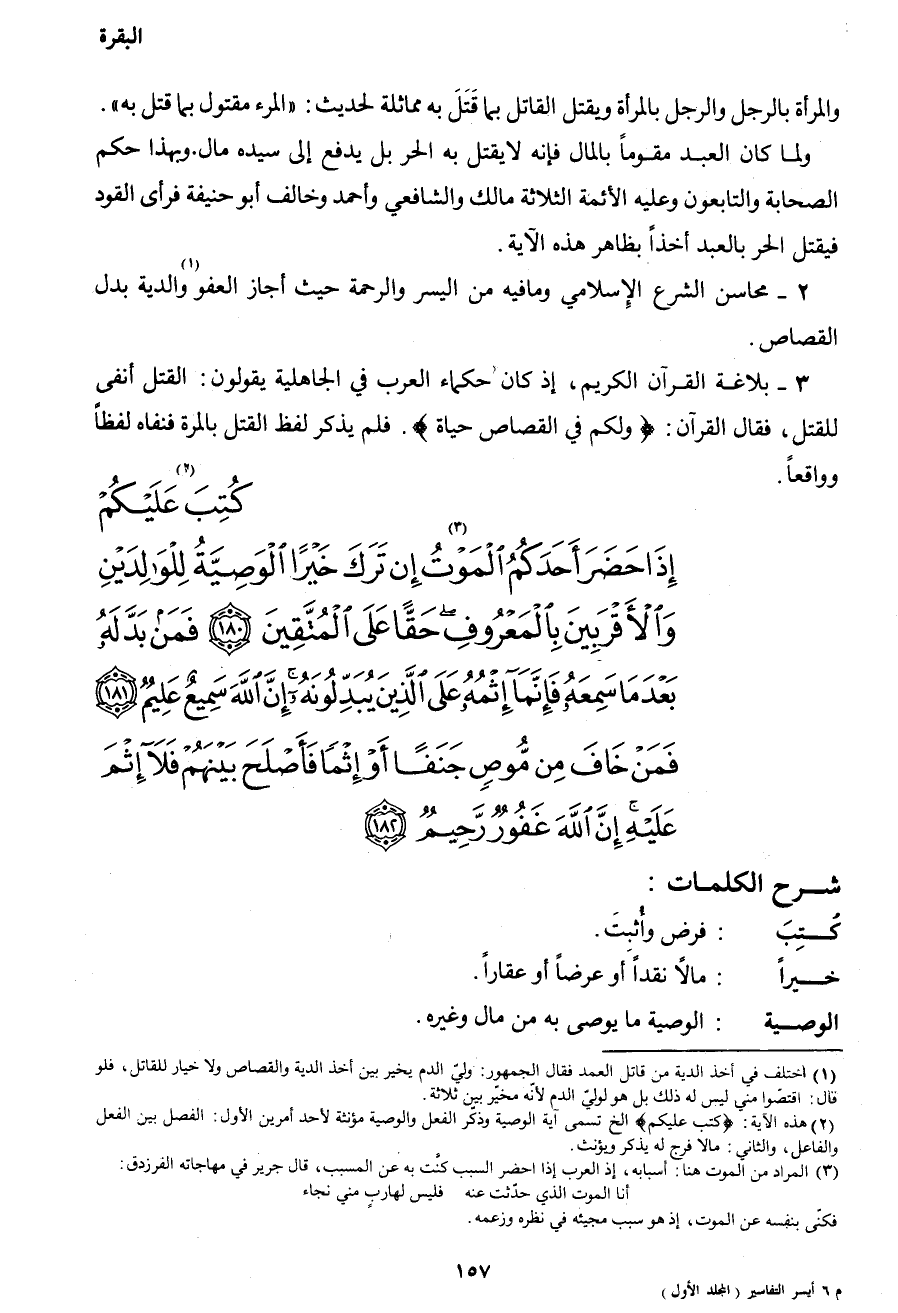 البقرة
والمرأة بالرجل والرجل بالمرأة ويقتل القاتل بما قَتَلَ به مماثلة لحديث : «المرء مقتول بما قتل به» .
ولما كان العبد مقوماً بالمال فإنه لايقتل به الحر بل يدفع إلى سيده مال.وبهذا حكم
الصحابة والتابعون وعليه الأئمة الثلاثة مالك والشافعي وأحمد وخالف أبو حنيفة فرأى القود
فيقتل الحر بالعبد أخذاً بظاهر هذه الآية .
٢ ـ محاسن الشرع الإسلامي ومافيه من اليسر والرحمة حيث أجاز العفو (١) والدية بدل
القصاص .
٣ ـ بلاغة القرآن الكريم ، إذ كان حكماء العرب في الجاهلية يقولون : القتل أنفى
للقتل ، فقال القرآن : ﴿ ولكم في القصاص حياة ﴾ . فلم يذكر لفظ القتل بالمرة فنفاه لفظاً
وواقعاً .
كُتِبَ (٢) عَلَيْكُمْ
إِذَا حَضَرَ أَحَدَكُمُ ٱلْمَوْتُ (٣) إِن تَرَكَ خَيْرًا ٱلْوَصِيَّةُ لِلْوَٰلِدَيْنِ
وَٱلْأَقْرَبِينَ بِٱلْمَعْرُوفِ ۖ حَقًّا عَلَى ٱلْمُتَّقِينَ ١٨٠ فَمَنۢ بَدَّلَهُۥ
بَعْدَمَا سَمِعَهُۥ فَإِنَّمَآ إِثْمُهُۥ عَلَى ٱلَّذِينَ يُبَدِّلُونَهُۥٓ ۚ إِنَّ ٱللَّهَ سَمِيعٌ عَلِيمٌ ١٨١
فَمَنْ خَافَ مِن مُّوصٍ جَنَفًا أَوْ إِثْمًا فَأَصْلَحَ بَيْنَهُمْ فَلَآ إِثْمَ
عَلَيْهِ ۚ إِنَّ ٱللَّهَ غَفُورٌ رَّحِيمٌ ١٨٢
شرح الكلمات :
كُتِبَ : فرض وأُثبتَ .
خيراً : مالًا نقداً أو عرضاً أو عقاراً .
الوصية : الوصية ما يوصى به من مال وغيره .
(١) اختلف في أخذ الدية من قاتل العمد فقال الجمهور : وليّ الدم يخير بين أخذ الدية والقصاص ولا خيار للقاتل، فلو
قال : اقتصّوا مني ليس له ذلك بل هو لوليّ الدم لأنّه مخيّر بين ثلاثة .
(٢) هذه الآية : ﴿كتب عليكم﴾ الخ تسمى آية الوصية وذكّر الفعل والوصية مؤنثة لأحد أمرين الأول : الفصل بين الفعل
والفاعل، والثاني : مالا فرج له يذكر ويؤنث .
(٣) المراد من الموت هنا : أسبابه، إذ العرب إذا احضر السبب كنَّت به عن المسبب، قال جرير في مهاجاته الفرزدق :
أنا الموت الذي حدّثت عنه فليس لهاربٍ مني نجاء
فكنّى بنفسه عن الموت، إذ هو سبب مجيئه في نظره وزعمه .
١٥٧
م ٦ أيسر التفاسير ( المجلد الأول )